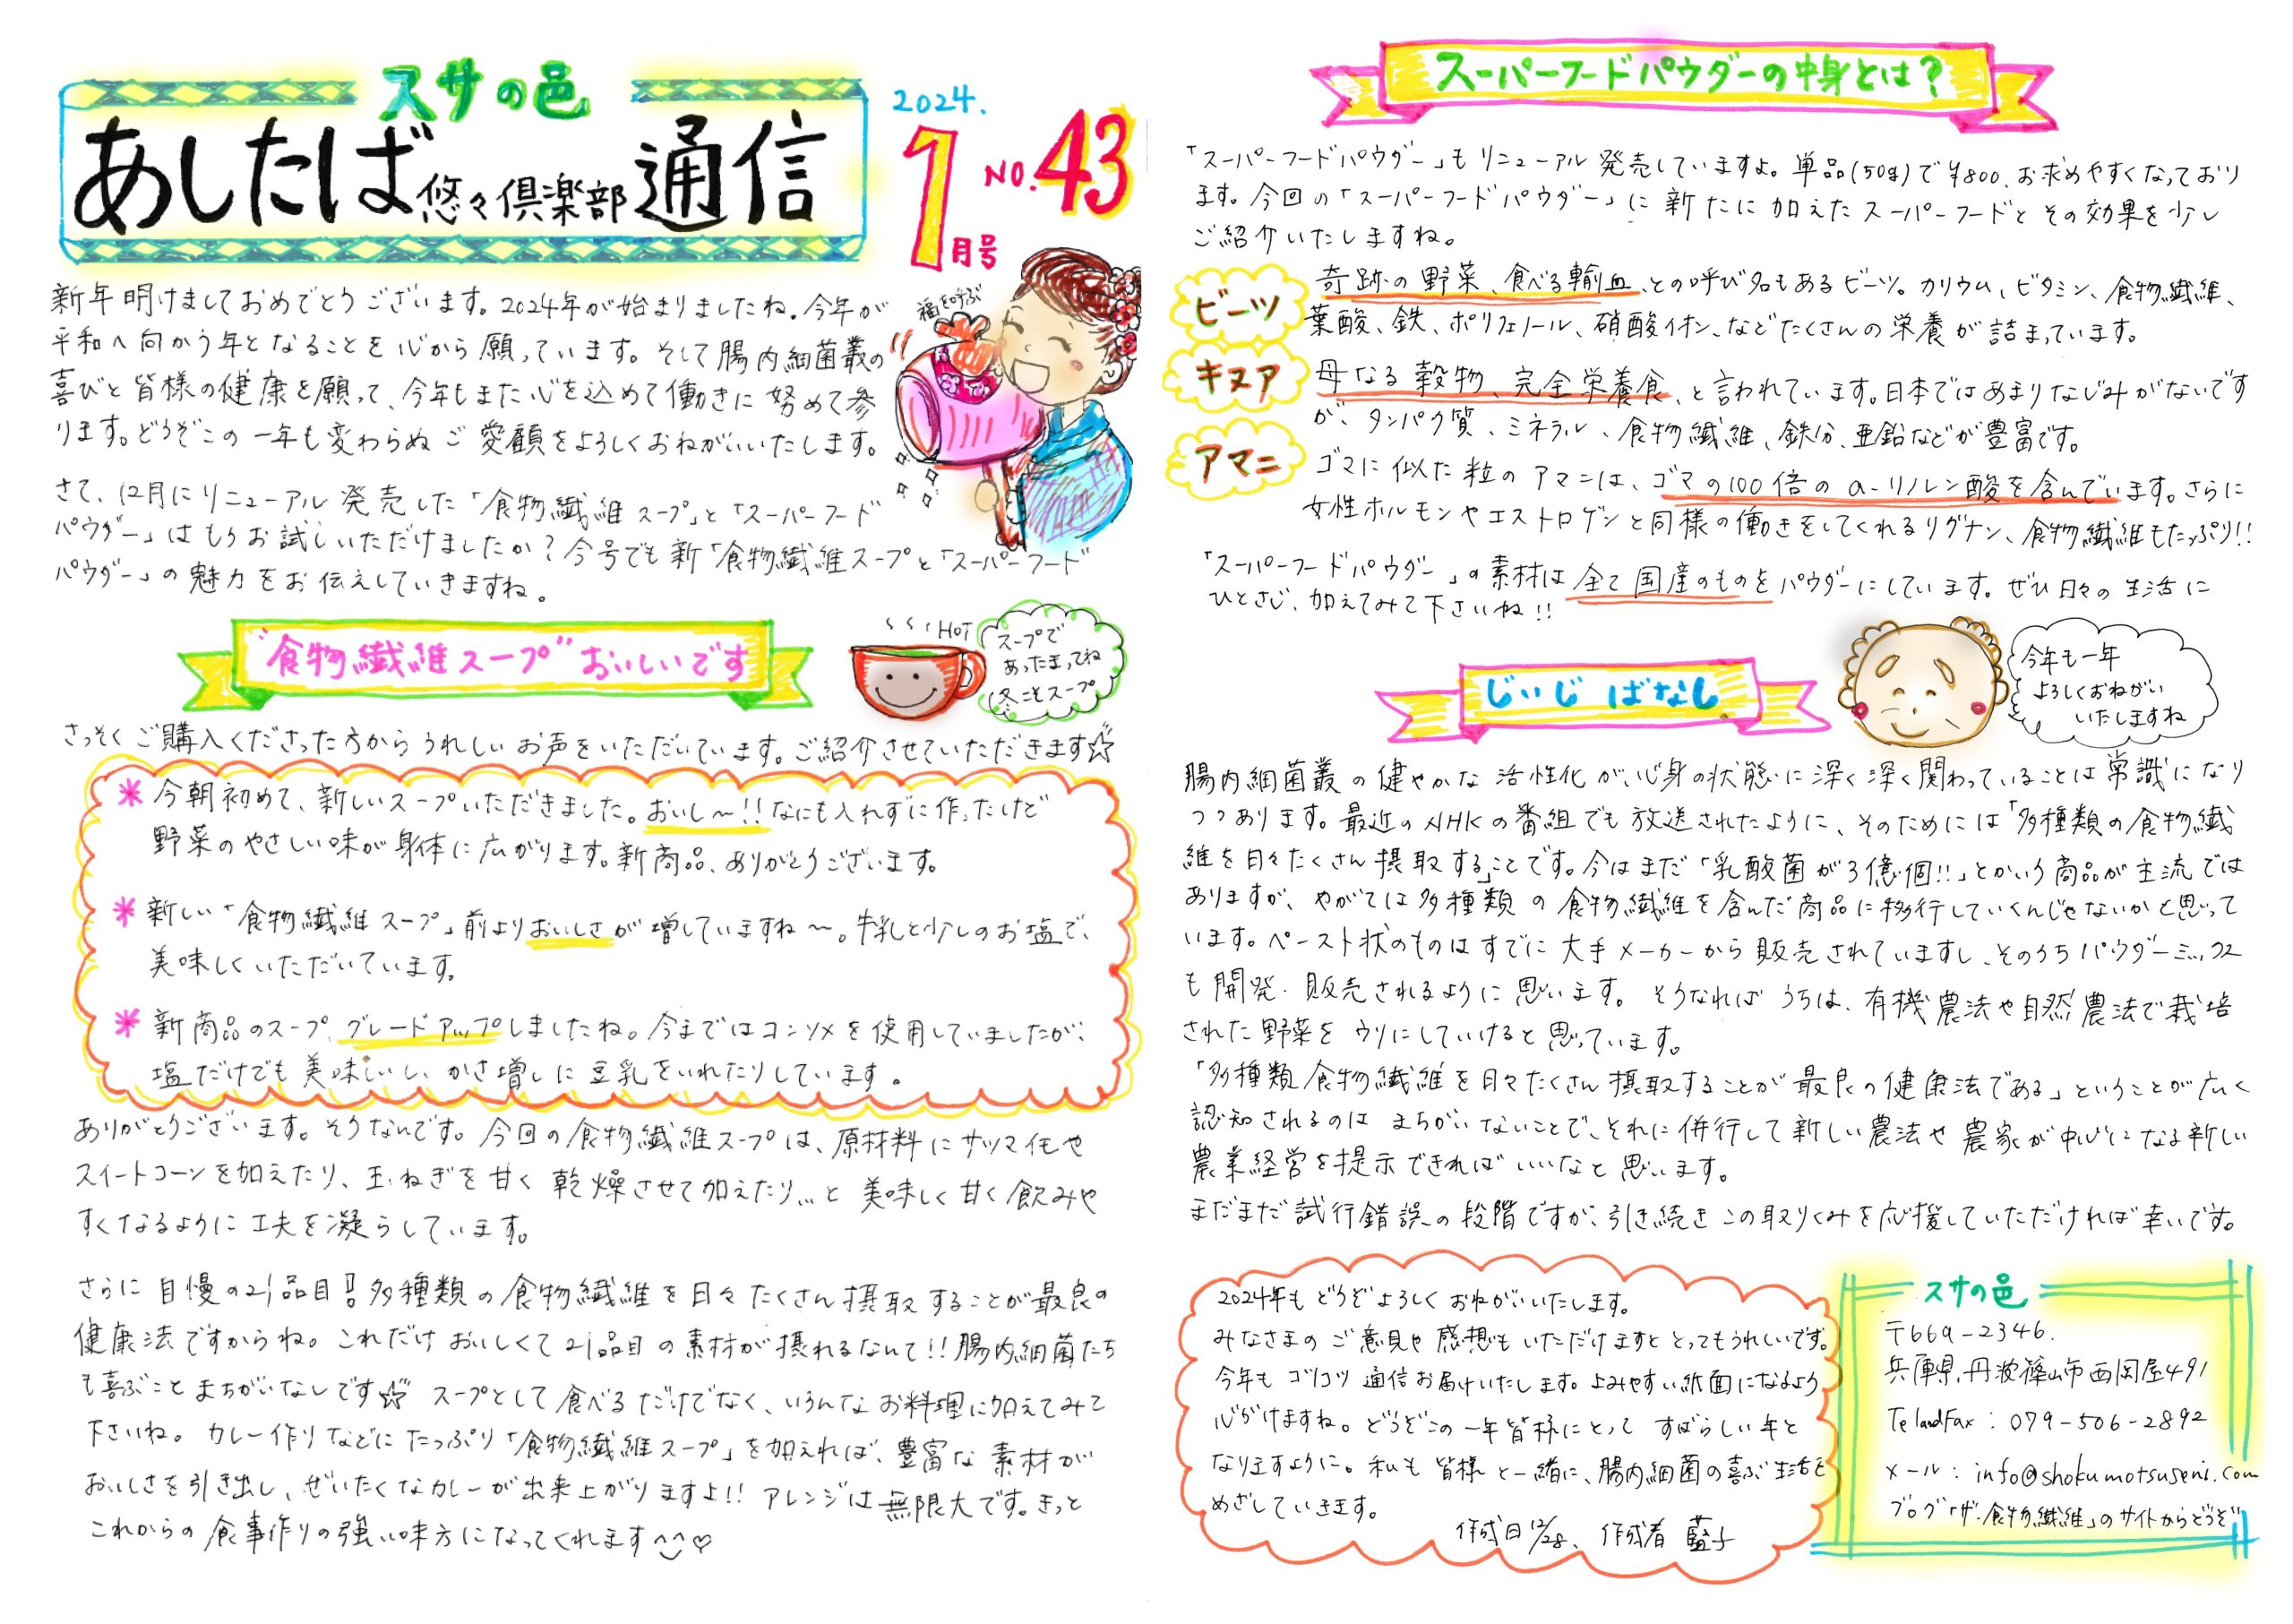 スサの邑
あしたば悠々倶楽部通信
2024.
1月号
NO.43
福を呼ぶ
新年明けましておめでとうございます。2024年が始まりましたね。今年が
平和へ向かう年となることを心から願っています。そして腸内細菌叢の
喜びと皆様の健康を願って、今年もまた心を込めて働きに努めて参
ります。どうぞこの一年も変わらぬご愛顧をよろしくおねがいいたします。
さて、12月にリニューアル発売した「食物繊維スープ」と「スーパーフード
パウダー」はもうお試しいただけましたか？今号でも新「食物繊維スープと「スーパーフード
パウダー」の魅力をお伝えしていきますね。
"食物繊維スープ"おいしいです
HOT
スープで
あったまってね
冬こそスープ
さっそくご購入くださった方からうれしいお声をいただいています。ご紹介させていただきます☆
* 今朝初めて、新しいスープいただきました。おいし〜!!なにも入れずに作ったけど
野菜のやさしい味が身体に広がります。新商品、ありがとうございます。
* 新しい「食物繊維スープ」前よりおいしさが増していますね〜。牛乳と少しのお塩で、
美味しくいただいています。
* 新商品のスープ、グレードアップしましたね。今まではコンソメを使用していましたが、
塩だけでも美味しいし、かさ増しに豆乳をいれたりしています。
ありがとうございます。そうなんです。今回の食物繊維スープは、原材料にサツマイモや
スイートコーンを加えたり、玉ねぎを甘く乾燥させて加えたり…と美味しく甘く飲みや
すくなるように工夫を凝らしています。
さらに自慢の21品目!!多種類の食物繊維を日々たくさん摂取することが最良の
健康法ですからね。これだけおいしくて21品目の素材が摂れるなんて!!腸内細菌たち
も喜ぶことまちがいなしです☆ スープとして食べるだけでなく、いろんなお料理に加えてみて
下さいね。カレー作りなどにたっぷり「食物繊維スープ」を加えれば、豊富な素材が
おいしさを引き出し、ぜいたくなカレーが出来上がりますよ!!アレンジは無限大です。きっと
これからの食事作りの強い味方になってくれます^^♡
スーパーフードパウダーの中身とは？
「スーパーフードパウダー」もリニューアル発売していますよ。単品(50g)で¥800、お求めやすくなっており
ます。今回の「スーパーフードパウダー」に新たに加えたスーパーフードとその効果を少し
ご紹介いたしますね。
ビーツ
奇跡の野菜、食べる輸血、との呼び名もあるビーツ。カリウム、ビタミン、食物繊維、
葉酸、鉄、ポリフェノール、硝酸イオン、などたくさんの栄養が詰まっています。
キヌア
母なる穀物、完全栄養食、と言われています。日本ではあまりなじみがないです
が、タンパク質、ミネラル、食物繊維、鉄分、亜鉛などが豊富です。
アマニ
ゴマに似た粒のアマニは、ゴマの100倍のα-リノレン酸を含んでいます。さらに
女性ホルモンやエストロゲンと同様の働きをしてくれるリグナン、食物繊維もたっぷり!!
「スーパーフードパウダー」の素材は全て国産のものをパウダーにしています。ぜひ日々の生活に
ひとさじ、加えてみて下さいね!!
じいじばなし
今年も一年
よろしくおねがい
いたしますね
腸内細菌叢の健やかな活性化が、心身の状態に深く深く関わっていることは常識になり
つつあります。最近のNHKの番組でも放送されたように、そのためには「多種類の食物繊
維を日々たくさん摂取する」ことです。今はまだ「乳酸菌が3億個!!」とかいう商品が主流では
ありますが、やがては多種類の食物繊維を含んだ商品に移行していくんじゃないかと思って
います。ペースト状のものはすでに大手メーカーから販売されていますし、そのうちパウダーミックス
も開発・販売されるように思います。そうなればうちは、有機農法や自然農法で栽培
された野菜をウリにしていけると思っています。
「多種類食物繊維を日々たくさん摂取することが最良の健康法である」ということが広く
認知されるのはまちがいないことで、それに併行して新しい農法や農家が中心になる新しい
農業経営を提示できればいいなと思います。
まだまだ試行錯誤の段階ですが、引き続きこの取りくみを応援していただければ幸いです。
2024年もどうぞよろしくおねがいいたします。
みなさまのご意見や感想もいただけますととってもうれしいです。
今年もコツコツ通信お届けいたします。よみやすい紙面になるよう
心がけますね。どうぞこの一年皆様にとってすばらしい年と
なりますように。私も皆様と一緒に、腸内細菌の喜ぶ生活を
めざしていきます。
作成日12/28、作成者 藍子
スサの邑
〒669-2346.
兵庫県丹波篠山市西岡屋491
TelandFax：079-506-2892
メール：info@shokumotsuseni.com
ブログ「ザ・食物繊維」のサイトからどうぞ